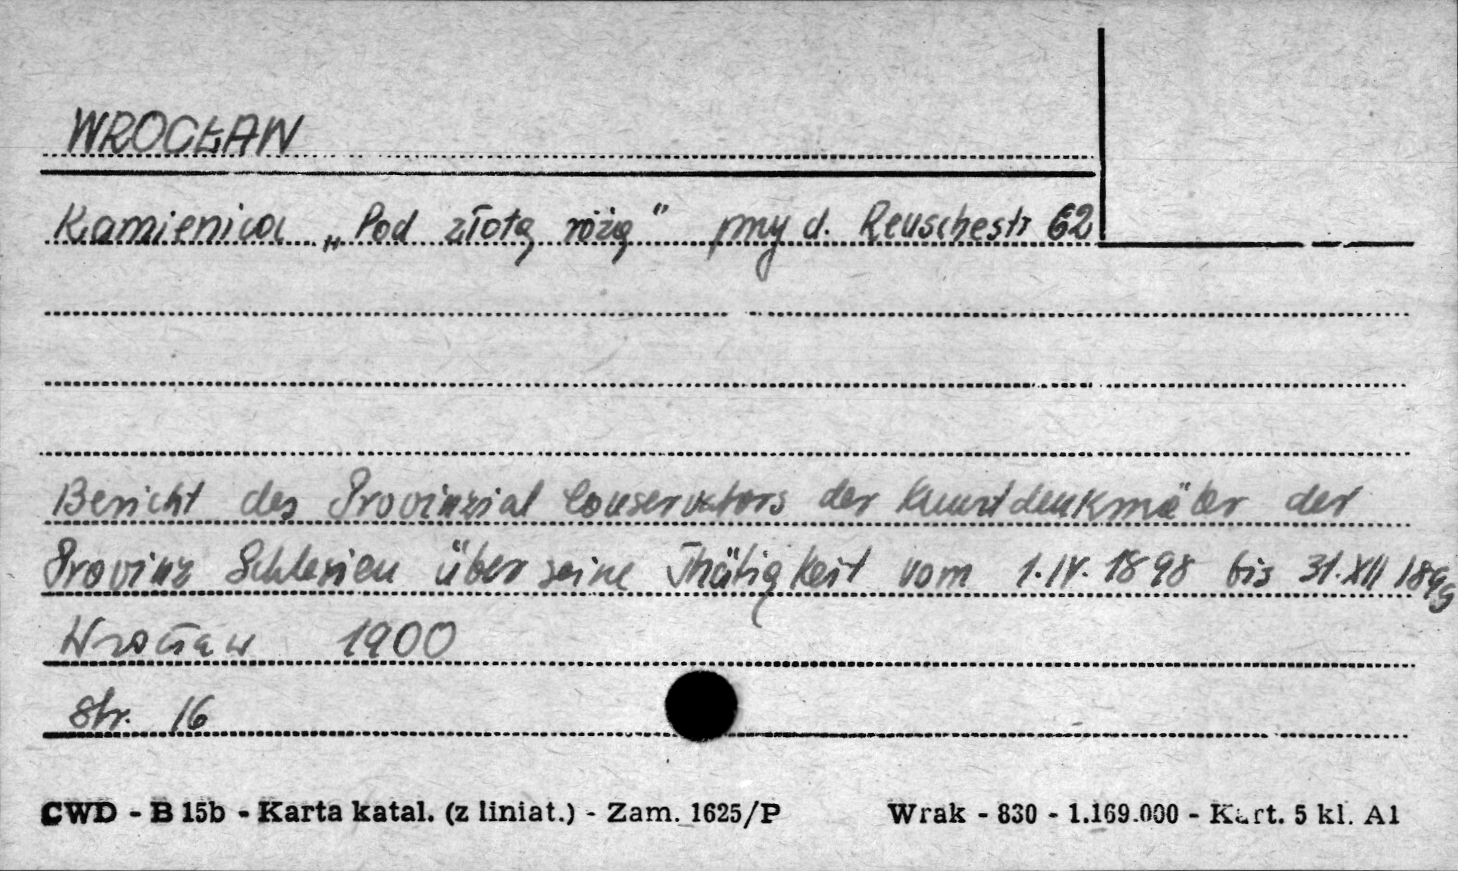 WROCŁAW
Kamienica „Pod złotą różą" przy d. Reuschestr 62
Bericht des Provinzial Conservators der Kunstdenkmäler der
Provinz Schlesien über seine Thätigkeit vom 1.IV.1898 bis 31.XII 1899
Wrocław 1900
str. 16
CWD - B 15b - Karta katal. (z liniat.) - Zam. 1625/P Wrak - 830 - 1.169.000 - Kart. 5 kl. A1